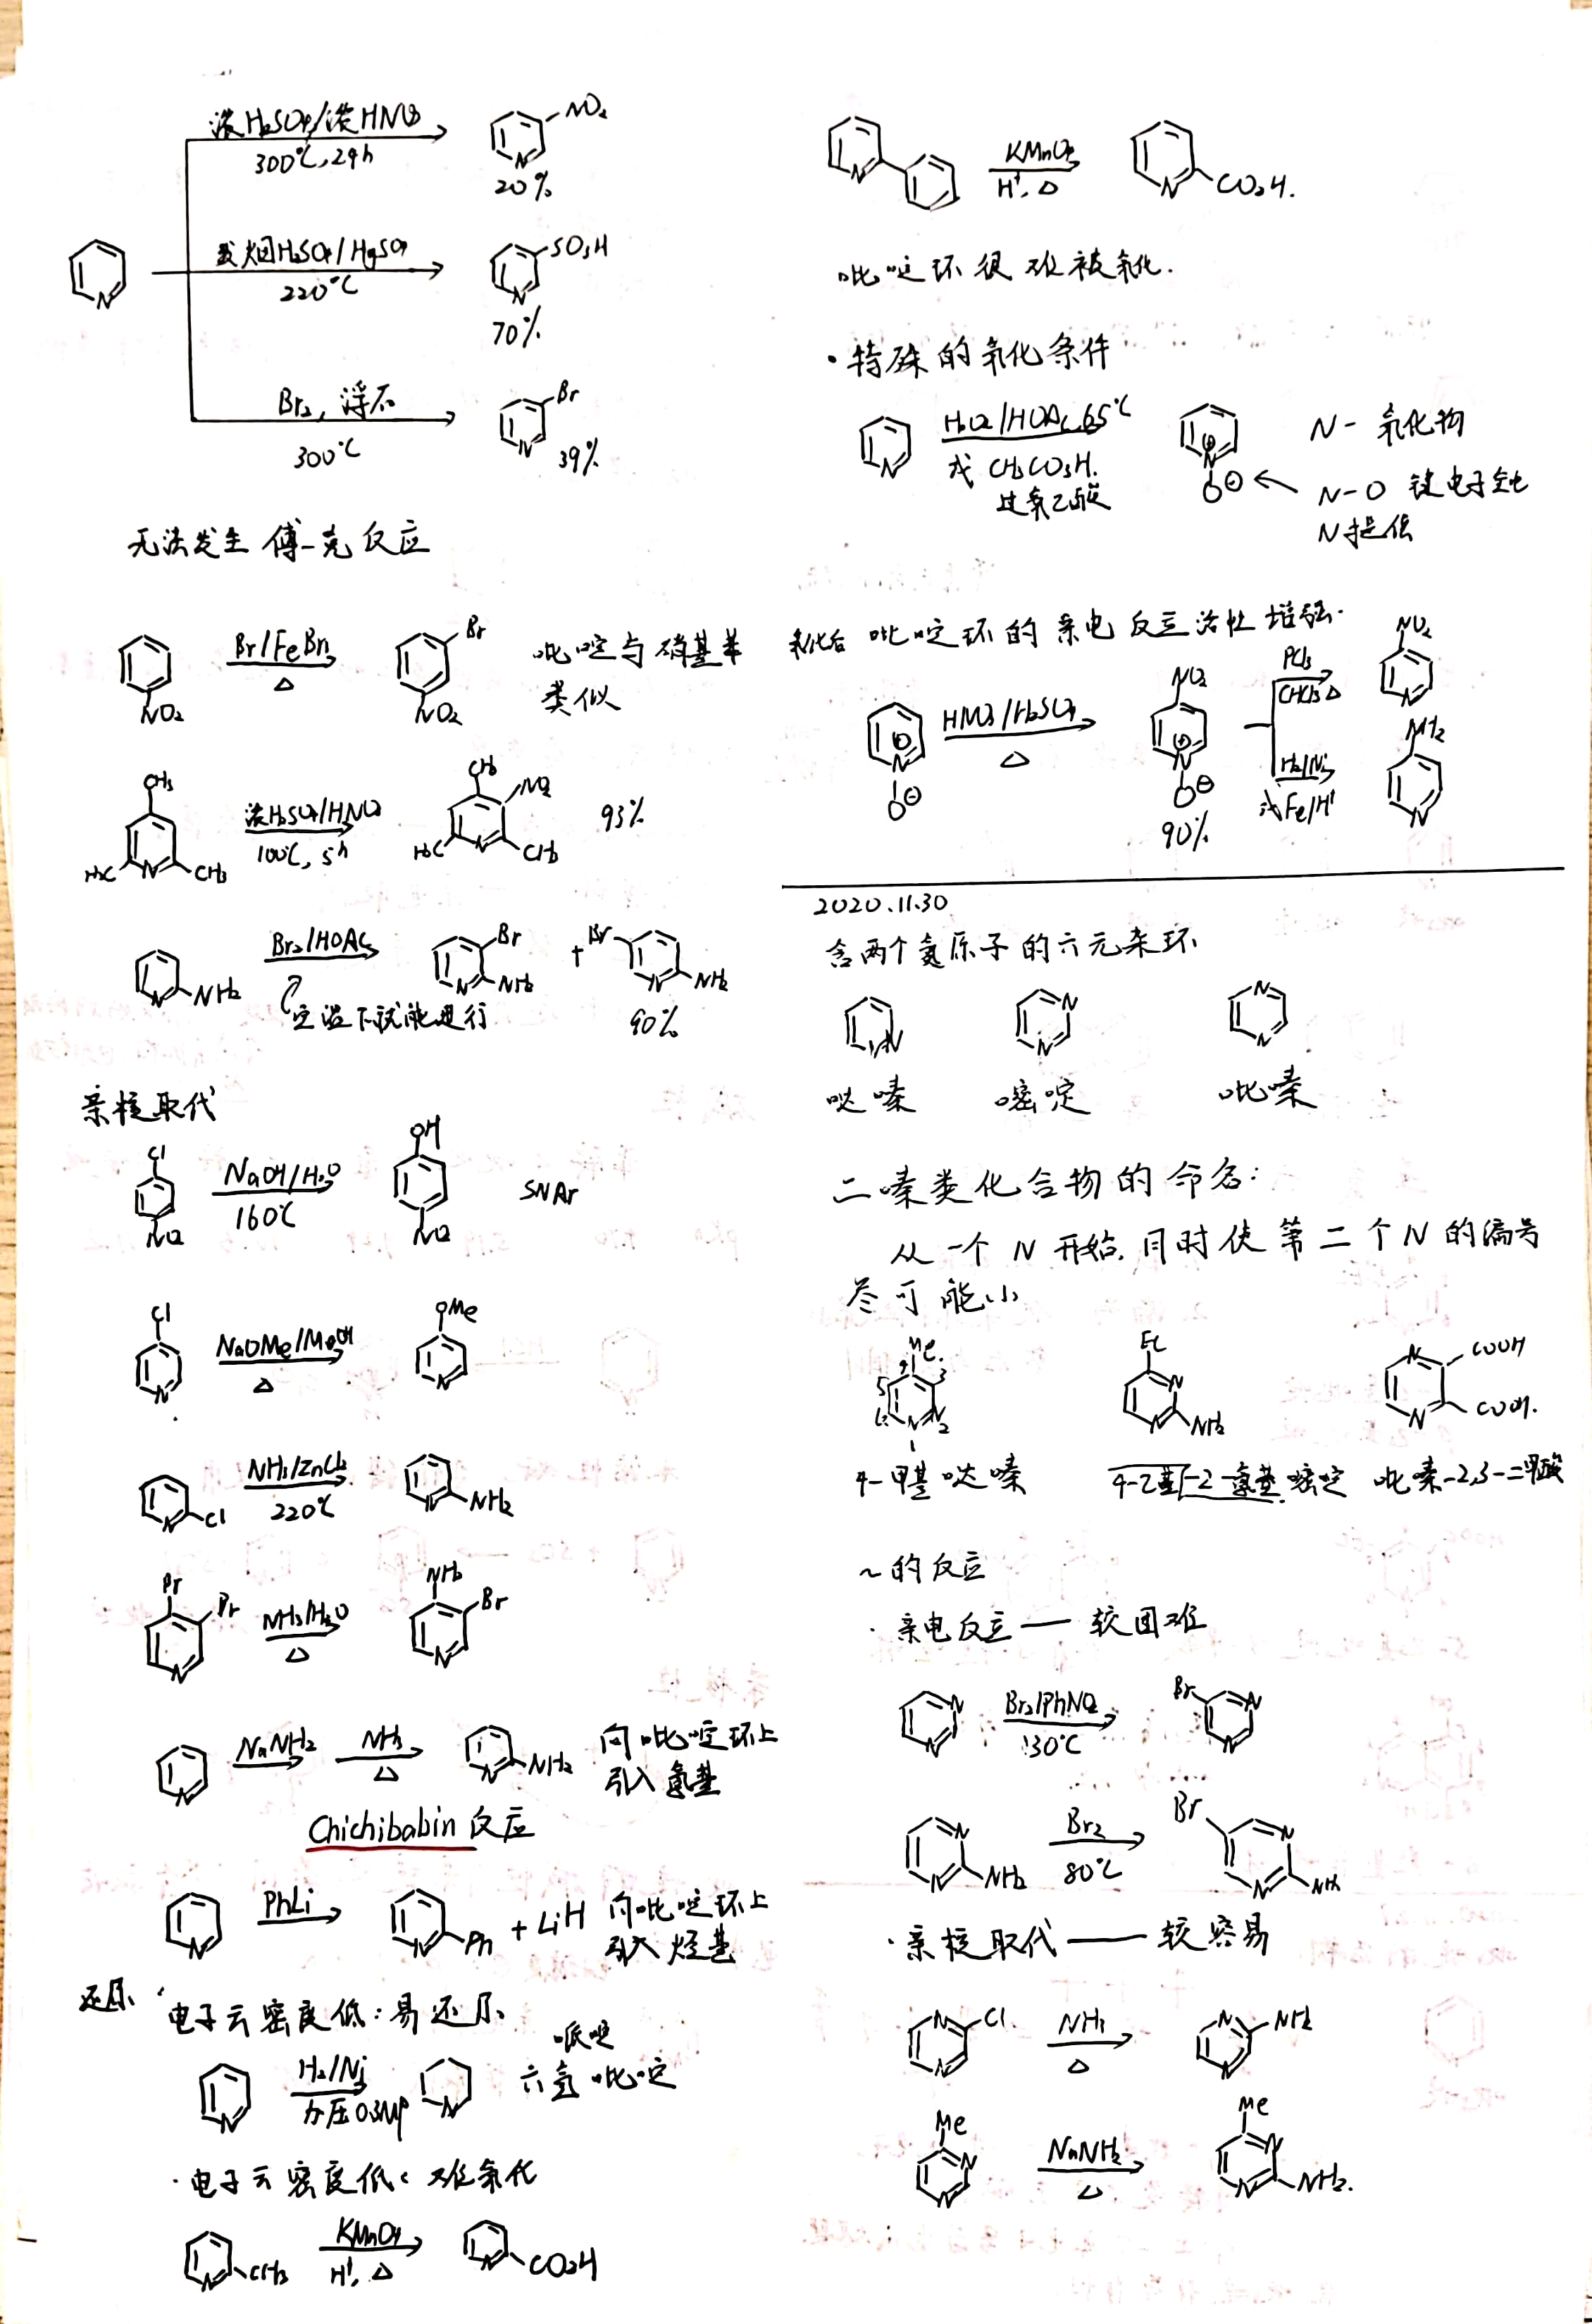 浓H₂SO₄/浓HNO₃
300℃, 24h
N
NO₂
20%
发烟H₂SO₄/HgSO₄
220℃
N
SO₃H
70%
N
Br₂, 浮石
300℃
N
Br
39%
无法发生 傅-克反应
Br/FeBr₃
△
NO₂
Br
NO₂
吡啶与硝基苯
类似
CH₃
H₃C N CH₃
浓H₂SO₄/HNO₃
100℃, 5h
CH₃
NO₂
H₃C N CH₃
93%
N NH₂
Br₂/HOAc
室温下就能进行
Br
N NH₂
+
Br
N NH₂
90%
亲核取代
Cl
NO₂
NaOH/H₂O
160℃
OH
NO₂
SNAr
Cl
N
NaOMe/MeOH
△
OMe
N
N Cl
NH₃/ZnCl₂
220℃
N NH₂
Br
Br
N
NH₃/H₂O
△
NH₂
Br
N
N
NaNH₂
NH₃
△
N NH₂
向吡啶环上
引入氨基
Chichibabin 反应
N
PhLi
N Ph
+ LiH
向吡啶环上
引入烃基
还原 · 电子云密度低: 易还原
N
H₂/Ni
加压0.3MP
N
哌啶
六氢吡啶
· 电子云密度低: 难氧化
N CH₃
KMnO₄
H⁺, △
N CO₂H
N
KMnO₄
H⁺, △
N CO₂H.
吡啶环很难被氧化.
· 特殊的氧化条件
N
H₂O₂/HOAc, 65℃
或 CH₃CO₃H.
过氧乙酸
⊕
N
O⊖
N- 氧化物
N-O 键电子
N提供
氧化后 吡啶环的亲电反应活性增强.
⊕
N
O⊖
HNO₃/H₂SO₄
△
NO₂
⊕
N
O⊖
90%
PCl₃
CHCl₃ △
NO₂
N
H₂/Ni
或Fe/H⁺
NH₂
N
2020.11.30
含两个氮原子的六元杂环
N N
N N
N N
哒嗪 嘧啶 吡嗪
二嗪类化合物的命名:
从一个N开始, 同时使第二个N的编号
尽可能小
Me.
4 3
5
6 N N 2
1
Et
N
N NH₂
N COOH
N COOH.
4-甲基哒嗪 4-乙基-2-氨基嘧啶 吡嗪-2,3-二甲酸
~的反应
· 亲电反应 — 较困难
N
N
Br₂/PhNO₂
130℃
Br N
N
N
N NH₂
Br₂
80℃
Br
N
N NH₂
· 亲核取代 — 较容易
N Cl.
N
NH₃
△
N NH₂
N
Me
N
N
NaNH₂
△
Me
N
N NH₂.